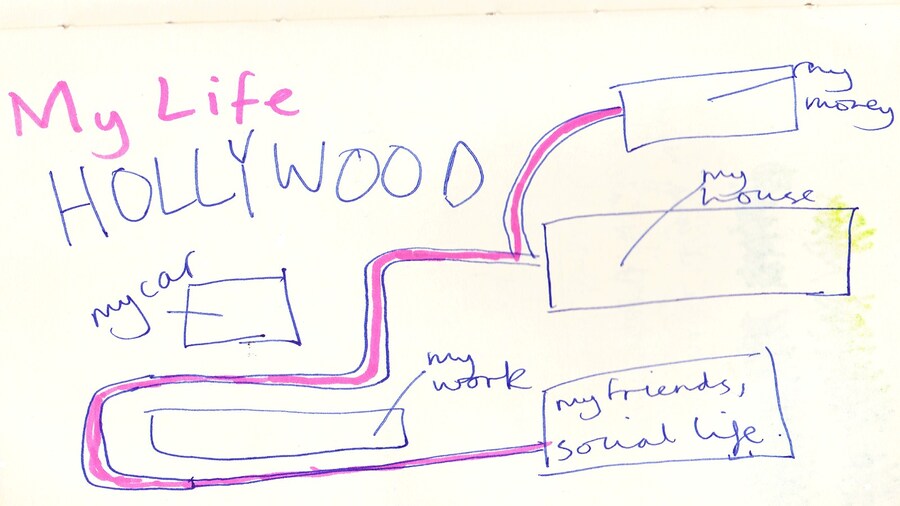 My Life
HOLLYWOOD
my
money
my
house
my car
my
work
my friends,
social life.